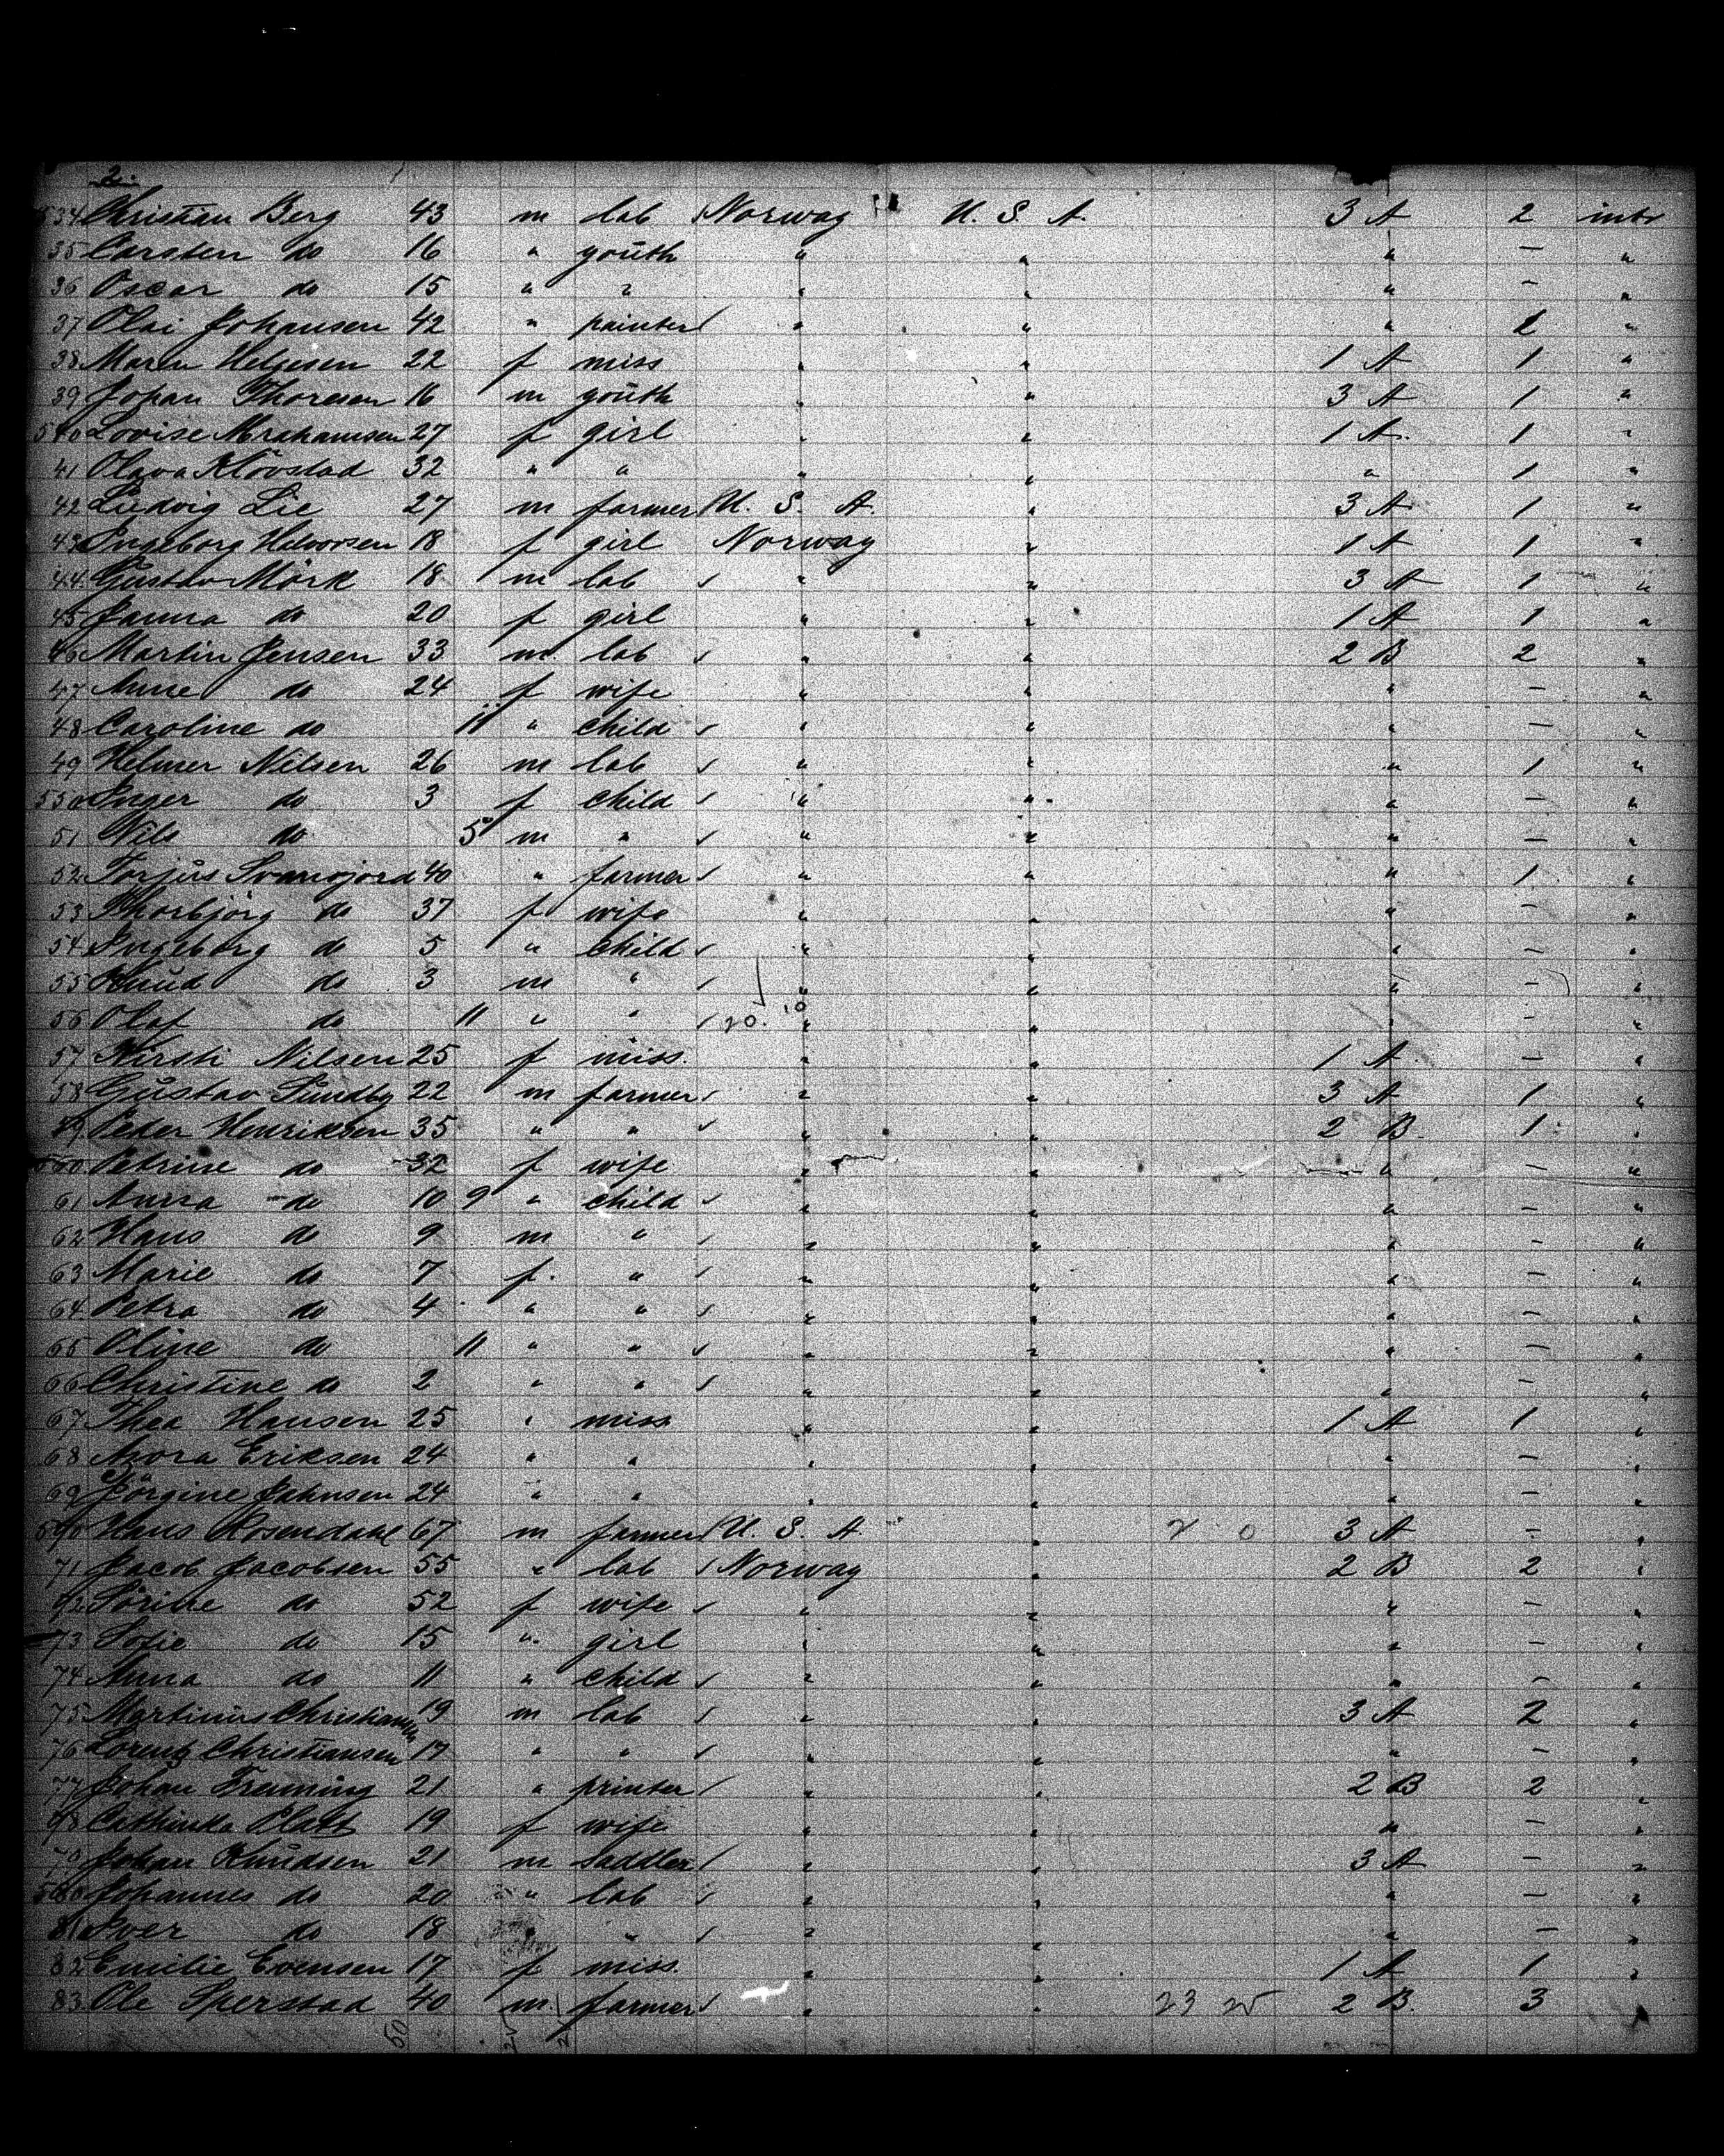 2.
534 Christian Berg 43 m lab Norway U. S. A. 3 A 2 intr
35 Carsten do 16 " youth " " " — "
36 Oscar do 15 " " " " " — "
37 Olai Johansen 42 " painter " " " 1 "
38 Maren Helgesen 22 f miss " " 1 A 1 "
39 Johan Thoresen 16 m youth " " 3 A 1 "
540 Lovise Abrahamsen 27 f girl " " 1 A. 1 "
41 Olava Klövstad 32 " " " " " 1 "
42 Ludvig Lie 27 m farmer U. S. A. " 3 A 1 "
43 Ingeborg Halvorsen 18 f girl Norway " 1 A 1 "
44 Gustav Mörk 18 m lab " " 3 A 1 "
45 Janna do 20 f girl " " 1 A 1 "
46 Martin Jensen 33 m. lab " " 2 B 2 "
47 Anne do 24 f wife " " " — "
48 Caroline do 11 " child " " " — "
49 Helmer Nilsen 26 m lab " " " 1 "
550 Inger do 3 f child " " " — "
51 Nils do 5 m " " " " — "
52 Torjus 40 " farmer " " " 1 "
53 Thorbjörg do 37 f wife " " " — "
54 Ingeborg do 5 " child " " " — "
55 Knud do 3 m " " " " — "
56 Olaf do 11 " " 20. 10 " " " — "
57 Kirsti Nilsen 25 f miss. " " 1 A — "
58 Gustav Sundby 22 m farmer " " 3 A 1 "
59 Peder Henriksen 35 " " " " 2 B. 1 "
560 Petrine do 32 f wife " " " — "
61 Anna do 10 9 " child " " " — "
62 Hans do 9 m " " " " — "
63 Marie do 7 f. " " " " — "
64 Petra do 4 " " " " " — "
65 Oline do 11 " " " " " — "
66 Christine do 2 " " " " " — "
67 Thea Hansen 25 " miss " " 1 A 1 "
68 Eriksen 24 " " " " " — "
69 Jörgine Johnsen 24 " " " " " — "
570 Hans Rosendahl 67 m farmer U. S. A. " 2 0 3 A — "
71 Jacob Jacobsen 55 " lab Norway " 2 B 2 "
72 Sörine do 52 f wife " " " — "
73 Sofie do 15 " girl " " " — "
74 Anna do 11 " child " " " — "
75 Martinius Christiansen 19 m lab " " 3 A 2 "
76 Lorentz Christiansen 17 " " " " " — "
77 Johan 21 " printer " " 2 B 2 "
78 Cathinka Platt 19 f wife " " " — "
79 Johan Knudsen 21 m saddler " " 3 A — "
580 Johannes do 20 " lab " " " — "
81 Iver do 18 " " " " " — "
82 Emilie Evensen 17 f miss. " " 1 A 1 "
83 Ole Sperstad 40 m. farmer " " 23 25 2 B. 3 "
50